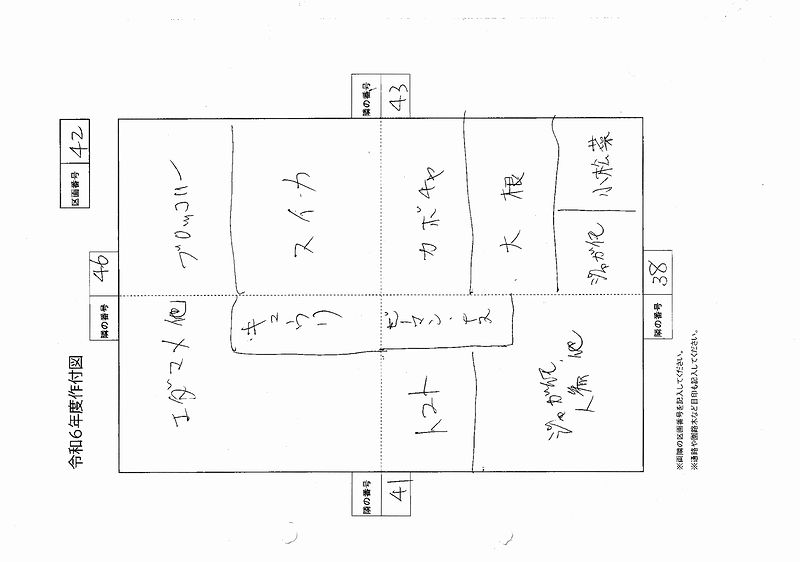 令和6年度作付図
区画番号 42
隣の番号 46
隣の番号 43
隣の番号 41
隣の番号 38
ブロッコリー
エダマメ 他
スイカ
キュウリ
カボチャ
ピーマン・ナス
トマト
大根
小松菜
ジャガ他
ジャガ他
人参 他
※両隣の区画番号を記入してください。
※通路や園路木など目印も記入してください。